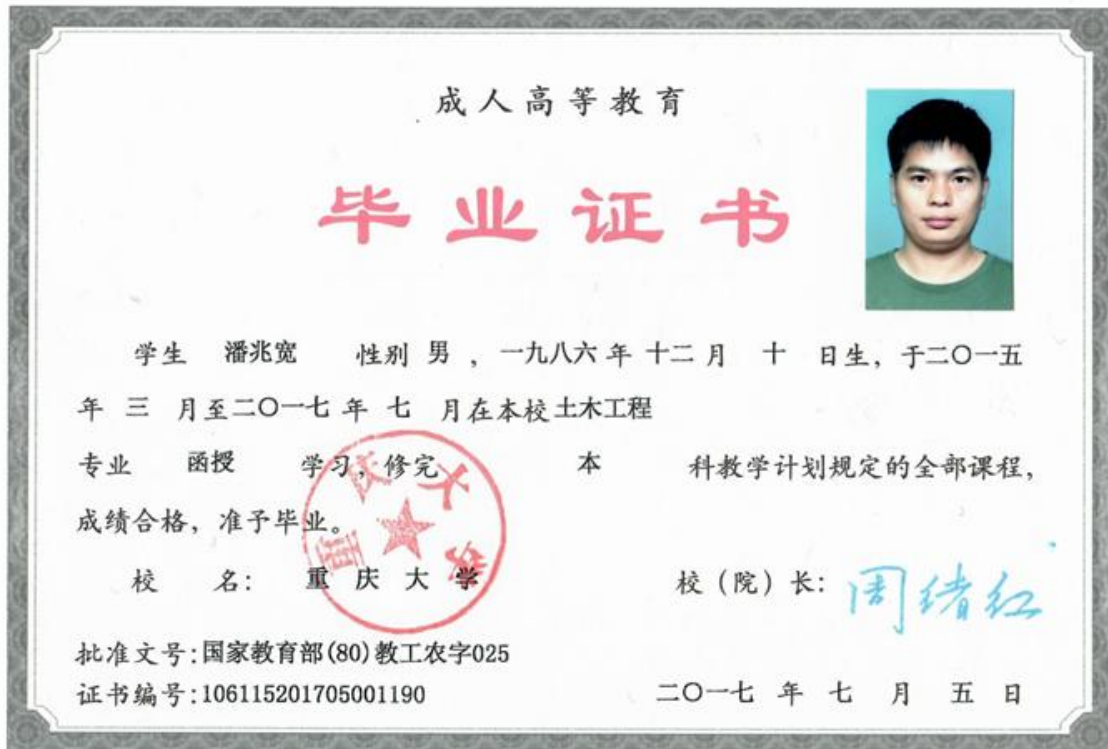 成人高等教育
毕业证书
学生 潘兆宽 性别 男 ，一九八六 年 十二 月 十 日生，于二〇一五
年 三 月至二〇一七 年 七 月在本校 土木工程
专业 函授 学习，修完 本 科教学计划规定的全部课程，
成绩合格，准予毕业。
重庆大学
校 名： 重 庆 大 学
校（院）长： 周绪红
批准文号：国家教育部(80)教工农字025
证书编号：106115201705001190
二〇一七 年 七 月 五 日